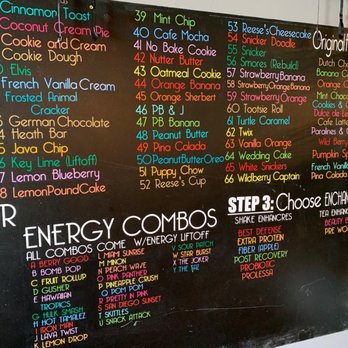 Cinnamon Toast
Coconut Cream Pie
Cookie and Cream
Cookie Dough
Elvis
French Vanilla Cream
Frosted Animal
Cracker
German Chocolate
Heath Bar
Java Chip
Key Lime (Liftoff)
Lemon Blueberry
LemonPoundCake
39 Mint Chip
40 Cafe Mocha
41 No Bake Cookie
42 Nutter Butter
43 Oatmeal Cookie
44 Orange Banana
45 Orange Sherbert
46 PB & J
47 PB Banana
48 Peanut Butter
49 Pino Colada
50 PeanutButterOreo
51 Puppy Chow
52 Reese's Cup
53 Reese'sCheesecake
54 Snicker Doodle
55 Snickers
56 Smores (Rebuild)
57 StrawberryBanana
58 StrawberryOrangeBanana
59 Strawberry Orange
60 Tootsie Roll
61 Turtle Caramel
62 Twix
63 Vanilla Orange
64 Wedding Cake
65 White Snickers
66 Wildberry Captain
Original
Dutch
Banana
Orange
Mint
Cookies &
Dulce
Cafe Latte
Pralines &
Wild
Pumpkin
French
Pina Colada
R
ENERGY COMBOS
ALL COMBOS COME W/ENERGY LIFTOFF
A BERRY GOOD
B BOMB POP
C FRUIT ROLLUP
D GUSHER
E HAWAIIAN
TROPICS
G HULK SMASH
H HOT TAMALEZ
I IRON MAN
J LAVA TWIST
K LEMON DROP
L MIAMI SUNRISE
M MINION
N PEACH WAVE
O PINK PANTHER
P PINEAPPLE CRUSH
Q POM POM
R PRETTY IN PINK
S SAN DIEGO SUNSET
T SKITTLES
U SNACK ATTACK
V SOUR PATCH
W STAR BURST
X THE JOKER
Y THE TAZ
STEP 3: Choose ENCHAN
SHAKE ENHANCERS
BEST DEFENSE
EXTRA PROTEIN
FIBER (APPLE)
POST RECOVERY
PROBIOTIC
PROLESSA
TEA
BEAUTY
PRE WO